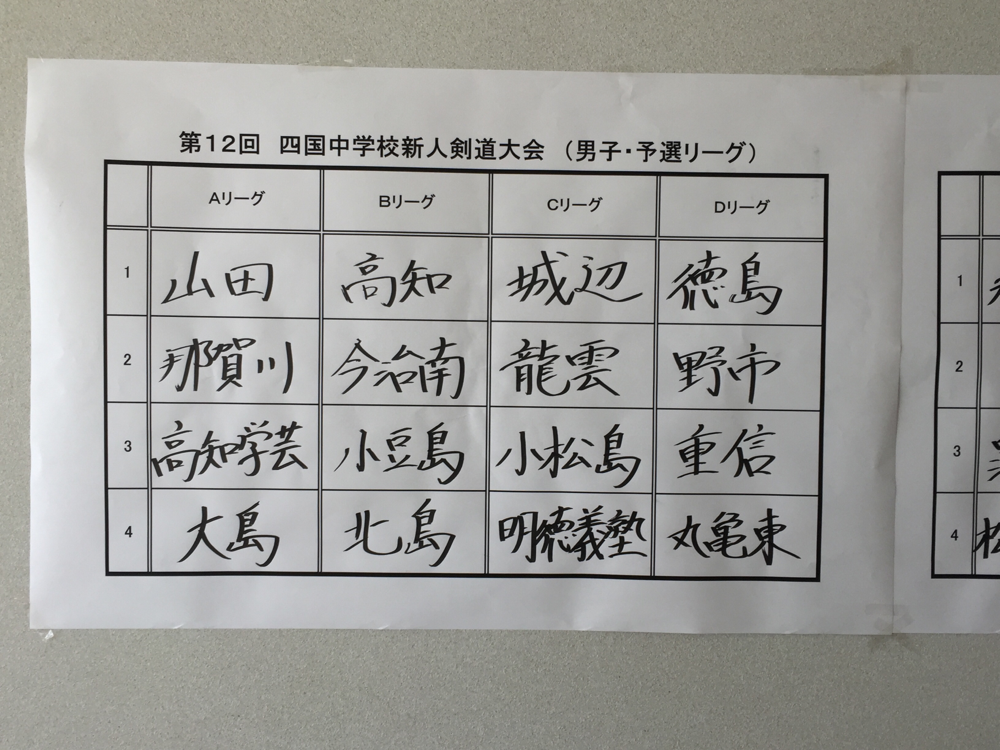 第12回 四国中学校新人剣道大会 (男子・予選リーグ)
Aリーグ Bリーグ Cリーグ Dリーグ
1 山田 高知 城辺 徳島 1
2 那賀川 今治南 龍雲 野市 2
3 高知学芸 小豆島 小松島 重信 3
4 大島 北島 明徳義塾 丸亀東 4